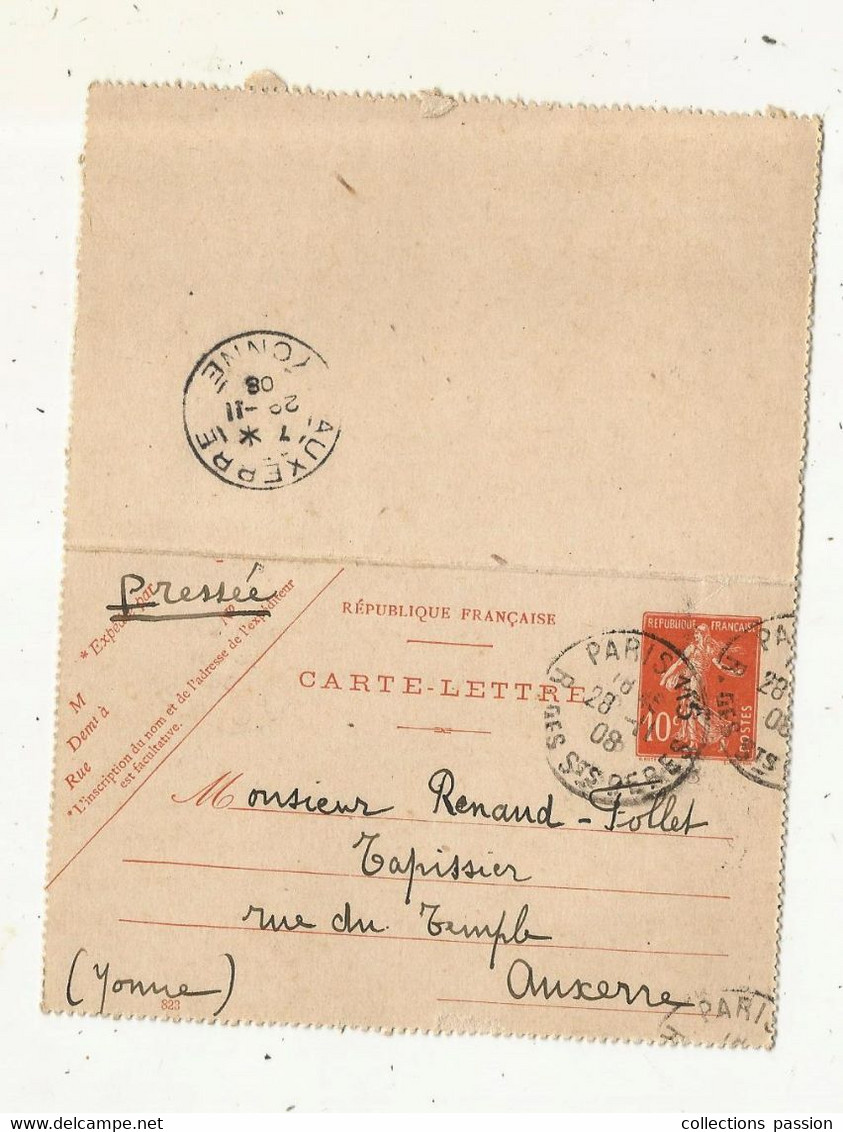 AUXERRE
7 *
29-11
08
YONNE
Pressée
* Expédié par
M
Demt à
Rue
*L'inscription du nom et de l'adresse de l'expéditeur
est facultative.
RÉPUBLIQUE FRANÇAISE
CARTE-LETTRE
REPUBLIQUE FRANÇAISE
10c
POSTES
PARIS
18
28
08
R. DES STS PERES
PA
28
08
R. DES STS
Monsieur Renaud-Follet
Tapissier
rue du Temple
Auxerre
(Yonne)
823
PARIS
collections passion